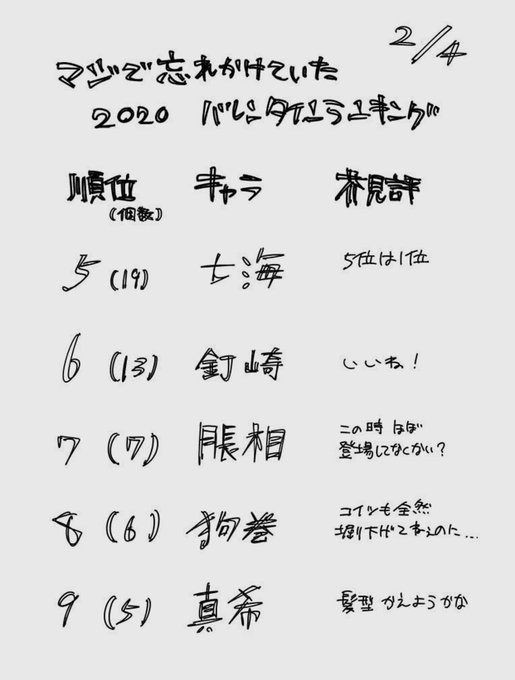 2/4
マジで忘れかけていた
2020 バレンタインランキング
順位 キャラ 芥見評
(個数)
5 (19) 七海 5位は1位
6 (13) 釘崎 いいね!
7 (7) 脹相 この時 ほぼ
登場してなくかい?
8 (6) 狗巻 コイツも全然
堀り下げてねぇのに...
9 (5) 真希 髪型かえようかな